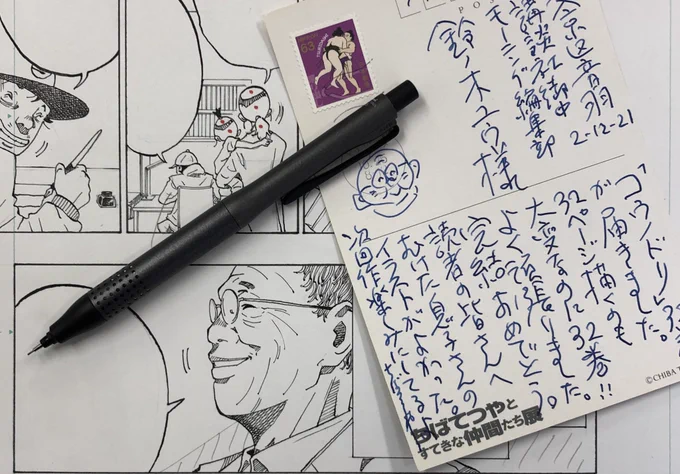 POS
63
京区音羽
2-12-21
講談社御中
モーニング編集部
鈴ノ木ユウ様
「コウノドリ」
が届きました。
32ページ描くのも
大変なのに32巻!!
よく頑張りました。
完結おめでとう。
読者の皆さんへ
むけた息子さんの
イラストがよかった。
次回作楽しみにしてる
©CHIBA T
ちばてつやと
すてきな仲間たち展